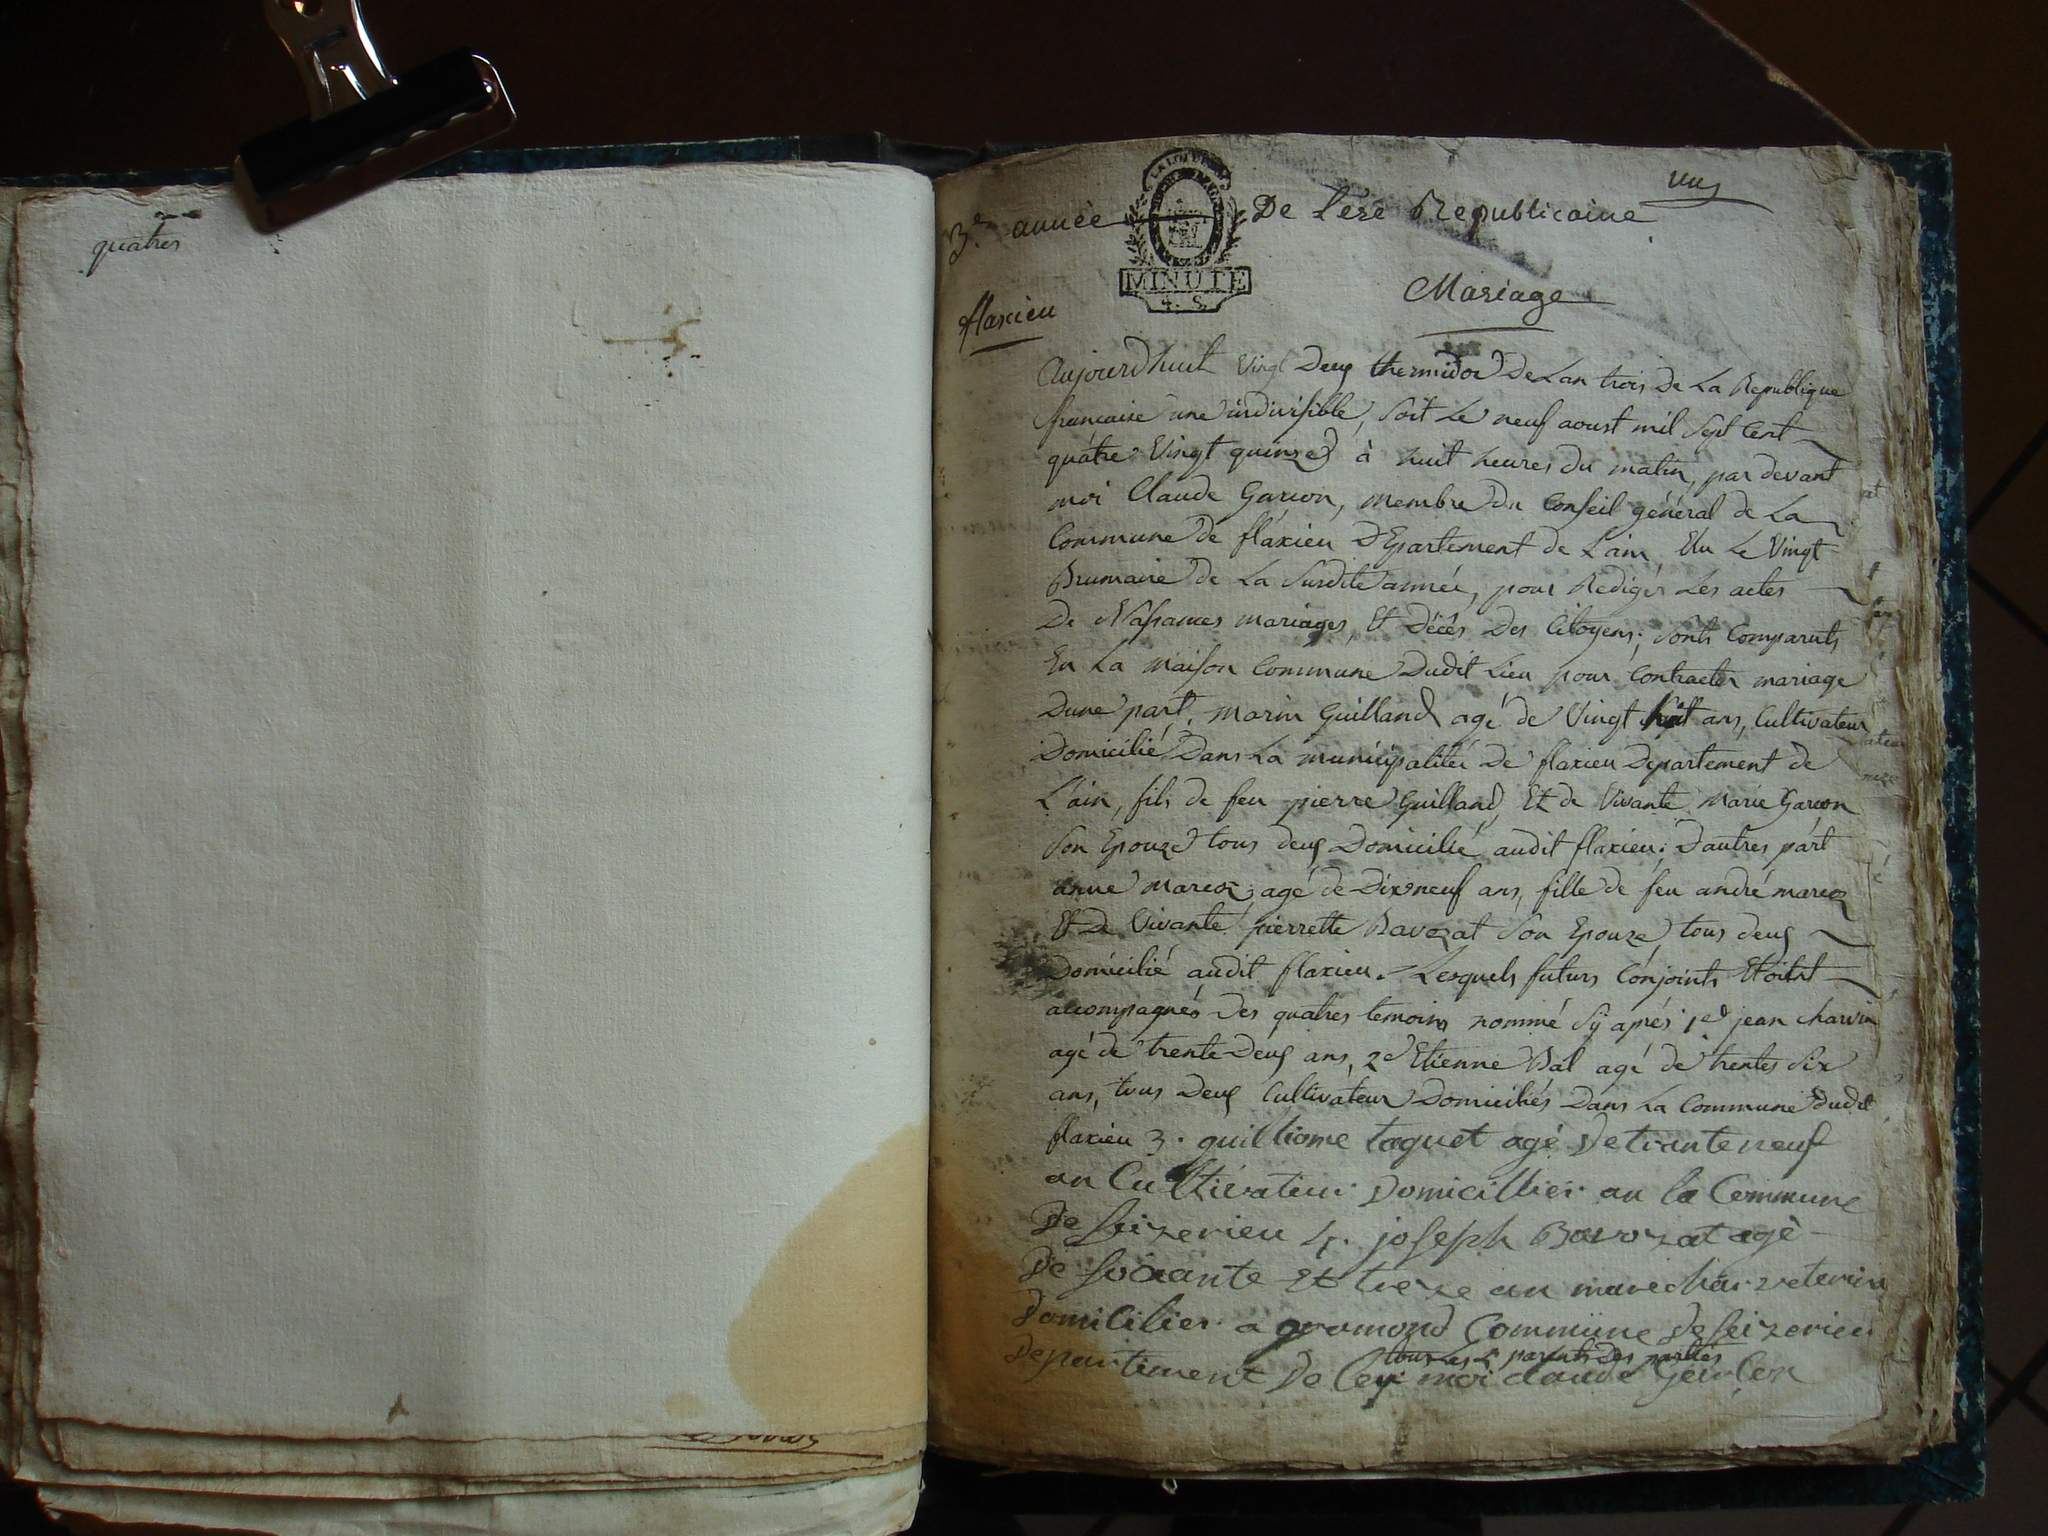 quatres
uns
3e année De L'ere Republicaine
MINUTE
4. S.
Mariage
flaxieu
Aujourdhuit Vingt Deux thermidor De Lan trois De La Republique
francaise une indivisible, soit Le neuf aoust mil sept Cent
quátre Vingt quinze à huit heures du matin, par devant
moi Claude Garcon, membre du Conseil général de La
Commune de fláxieu DEpartement de Lain Elu Le Vingt
Brumaire de La Susdite année, pour Redigér Les actes
De Naissances mariages, Et Décés Des Citoyens; Sonts Comparuts
En La maison Commune Dudit Lieu pour Contracter mariage
Dune part, marin Guilland agé de Vingt huit ans, Cultivateur
Domicilié Dans La municipalitée De flaxieu Departement de
L'ain, fils de feu pierre Guilland, Et de Vivante Marie Garcon
Son Epouze tous deux Domicilié audit flaxieu; D'autres párt
anne marcoz agé de Dix neuf ans, fille de feu andré marcoz
Et De Vivante pierrette Bavozat Son Epouze tous deux
Domicilié audit flaxieu. Lesquels futurs Conjoints Etoitst
accompagnés Des quatres temoins nommé Sÿ aprés 1er jean charvin
agé de trente Deux ans, 2e Etienne Bal agé de trentes Six
ans, tous Deux Cultivateur Domiciliés Dans La Commune Dudit
flaxieu 3. guilliome taguet agé De trante neuf
an Cultivateur Domicillier an la Commune
De Seizerieu 4. joseph Bavozat agè
De Soixante Et treze an marechai veterin
Domicilier a gromond Commune De Seizerieu
tous Les parents Des parties
Departiment De Lein moi claude